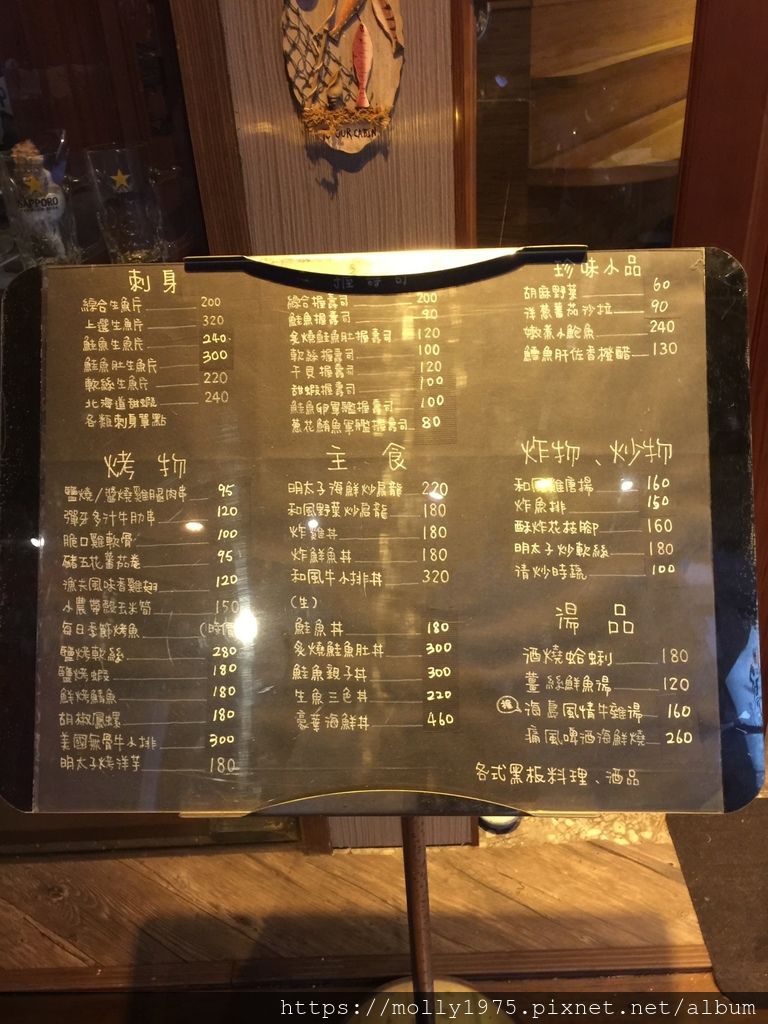 SAPPORO
刺身
綜合生魚片 200
上選生魚片 320
鮭魚生魚片 240
鮭魚肚生魚片 300
軟絲生魚片 220
北海道甜蝦 240
各類刺身單點
握壽司
綜合握壽司 200
鮭魚握壽司 90
炙燒鮭魚肚握壽司 120
軟絲握壽司 100
干貝握壽司 120
甜蝦握壽司 100
鮭魚卵軍艦握壽司 100
蔥花鮪魚軍艦握壽司 80
珍味小品
胡麻野菜 60
洋蔥蕃茄沙拉 90
嫩煮小鮑魚 240
鱈魚肝佐香橙醋 130
烤物
鹽燒/醬燒雞腿肉串 95
彈牙多汁牛肋串 120
脆口雞軟骨 100
豬五花蕃茄卷 95
漁夫風味香雞翅 120
小農帶殼玉米筍 150
每日季節烤魚 (時價)
鹽烤軟絲 280
鹽烤蝦 180
鮮烤鯖魚 180
胡椒鳳螺 180
美國無骨牛小排 300
明太子烤洋芋 180
主食
明太子海鮮炒烏龍 220
和風野菜炒烏龍 180
炸雞丼 180
炸鮮魚丼 180
和風牛小排丼 320
(生)
鮭魚丼 180
炙燒鮭魚肚丼 300
鮭魚親子丼 300
生魚三色丼 220
豪華海鮮丼 460
炸物、炒物
和風雞唐揚 160
炸魚排 150
酥炸花枝腳 160
明太子炒軟絲 180
清炒時蔬 100
湯品
酒燒蛤蜊 180
薑絲鮮魚湯 120
海島風情牛雞湯 160
痛風啤酒海鮮燒 260
各式黑板料理、酒品
https://molly1975.pixnet.net/album